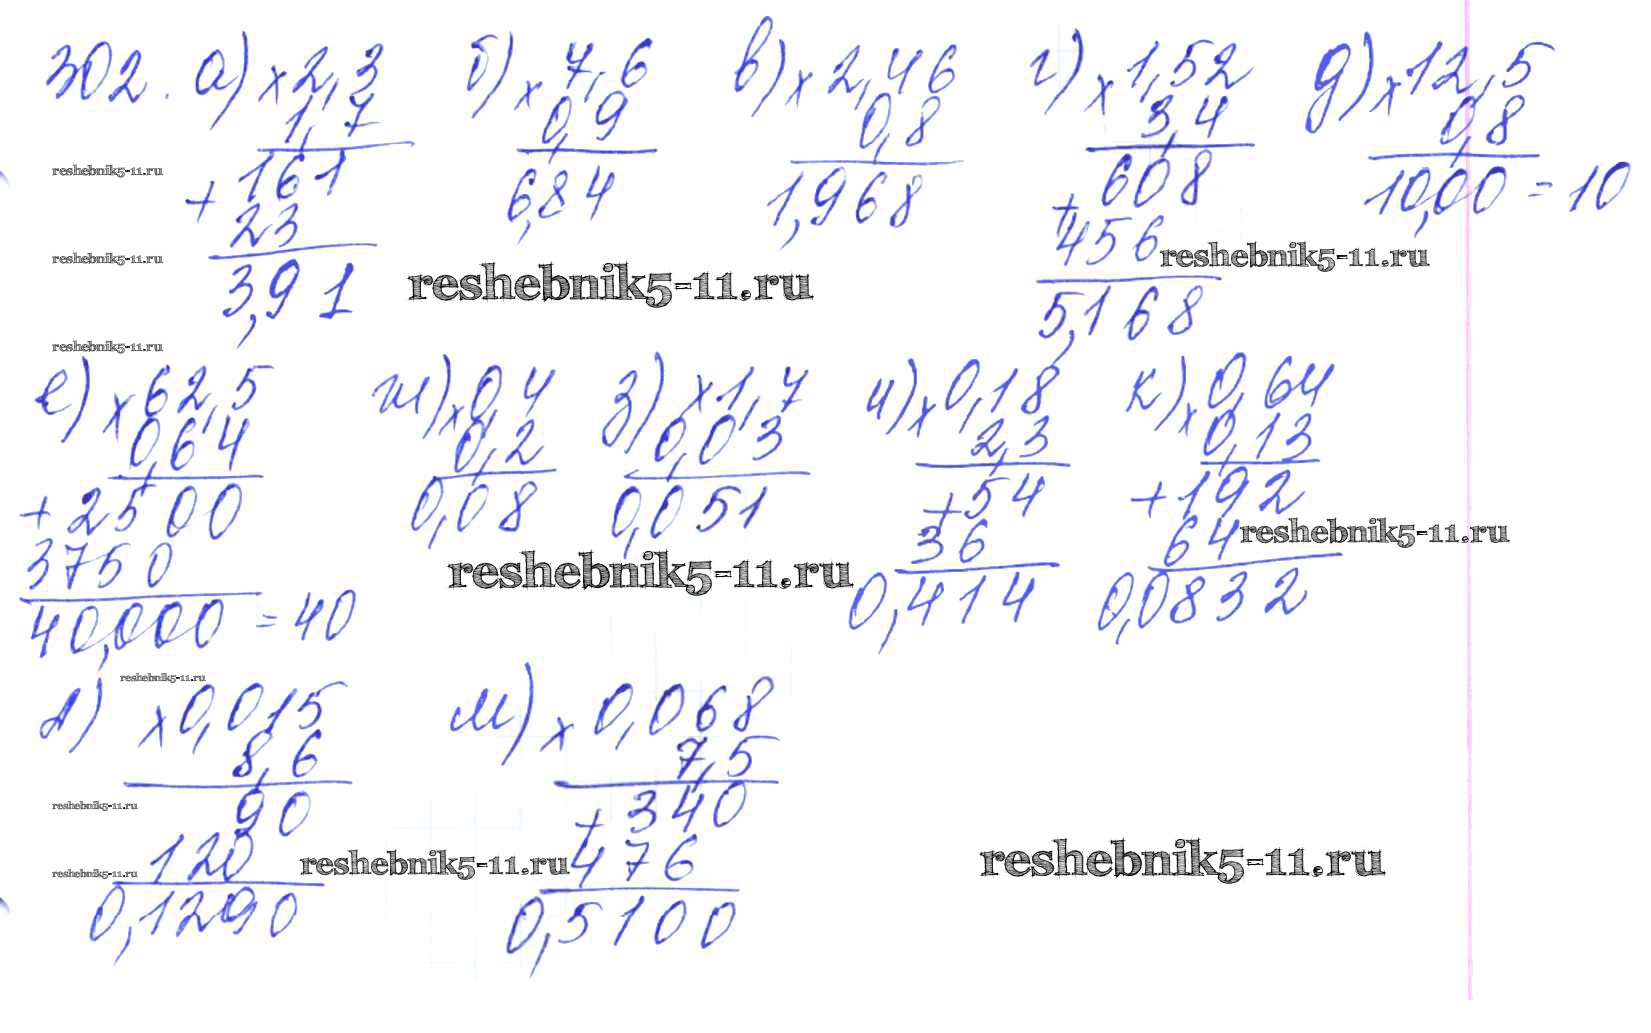 302. а) × 2,3 б) × 7,6 в) × 2,46 г) × 1,52 д) × 12,5
1,7 0,9 0,8 3,4 0,8
+ 161 6,84 1,968 + 608 10,00 = 10
23 456
3,91 5,168
reshebnik5-11.ru
reshebnik5-11.ru
reshebnik5-11.ru
reshebnik5-11.ru
reshebnik5-11.ru
е) × 62,5 ж) × 0,4 з) × 1,7 и) × 0,18 к) × 0,64
0,64 0,2 0,03 2,3 0,13
+ 2500 0,08 0,051 + 54 + 192
3750 36 64
40,000 = 40 0,414 0,0832
reshebnik5-11.ru
reshebnik5-11.ru
reshebnik5-11.ru
л) × 0,015 м) × 0,068
8,6 7,5
90 + 340
120 476
0,1290 0,5100
reshebnik5-11.ru
reshebnik5-11.ru
reshebnik5-11.ru
reshebnik5-11.ru